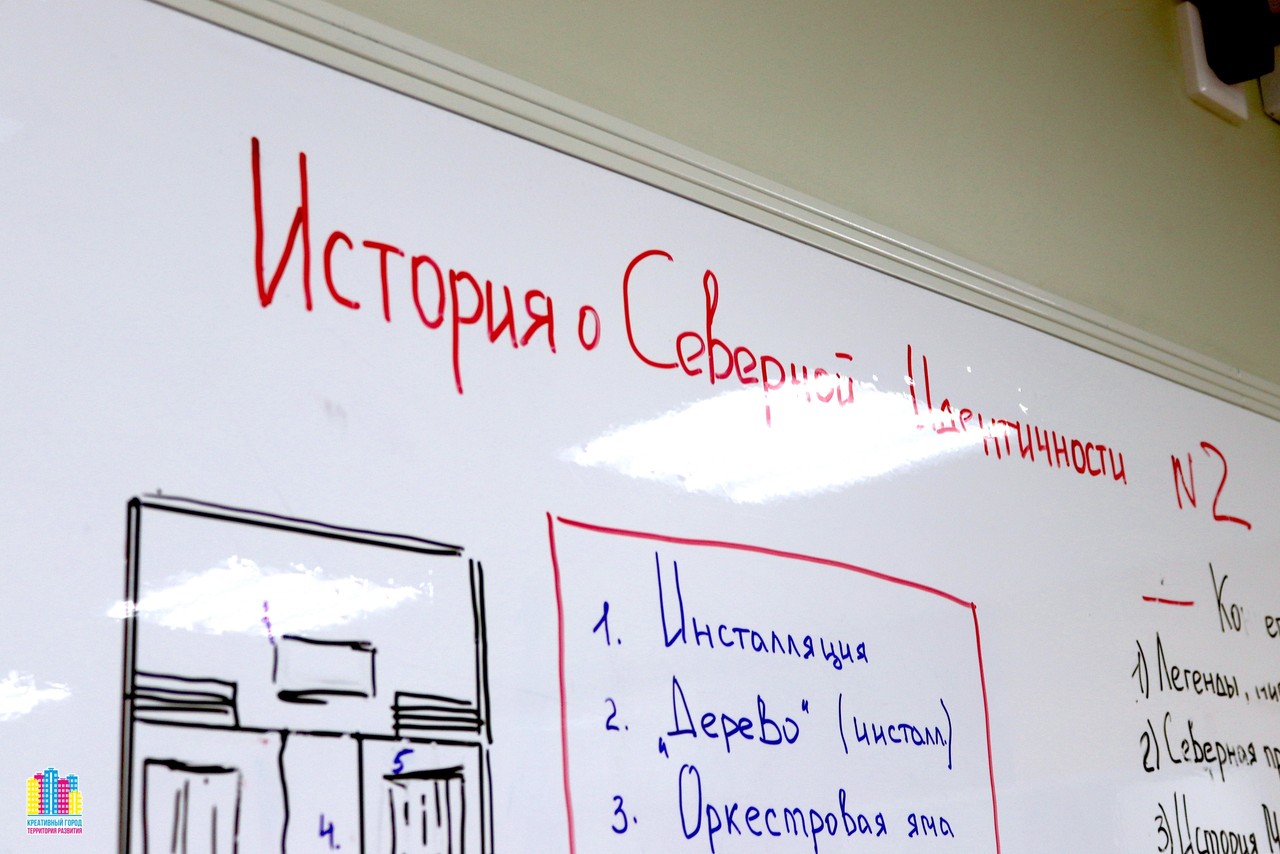 История о Северной Идентичности N2
1. Инсталляция
2. „Дерево" (инсталл.)
3. Оркестровая яма
5
4.
1) Легенды,
2) Северная
3) История
КРЕАТИВНЫЙ ГОРОД
ТЕРРИТОРИЯ РАЗВИТИЯ